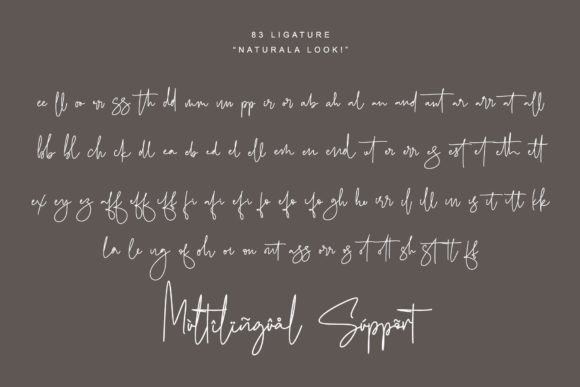 83 LIGATURE
“NATURALA LOOK!”
ee ll oo rr ss th dd mm nn pp ir or ab ah al an and ant ar arr at all
bb bl ch ck dl ea eb ed el ell em en end nt er err es est et eth ett
ex ey ez aff eff iff fi afi efi fo efo ifo gh he irr if ill in is it itt kk
la le ng of oh oi on ont ass orr os ot ott sh st tt ff
Mùltîlïñgûål Súppõrt